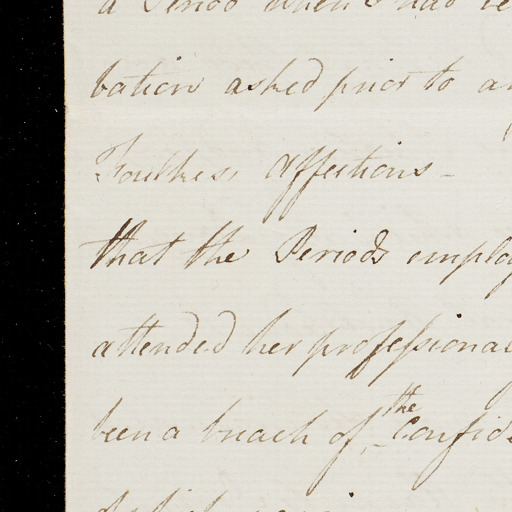 a Period when I had
bation asked prior to
Foulkes, affections -
that the Periods employ
attended her professional
been a breach of the Confid